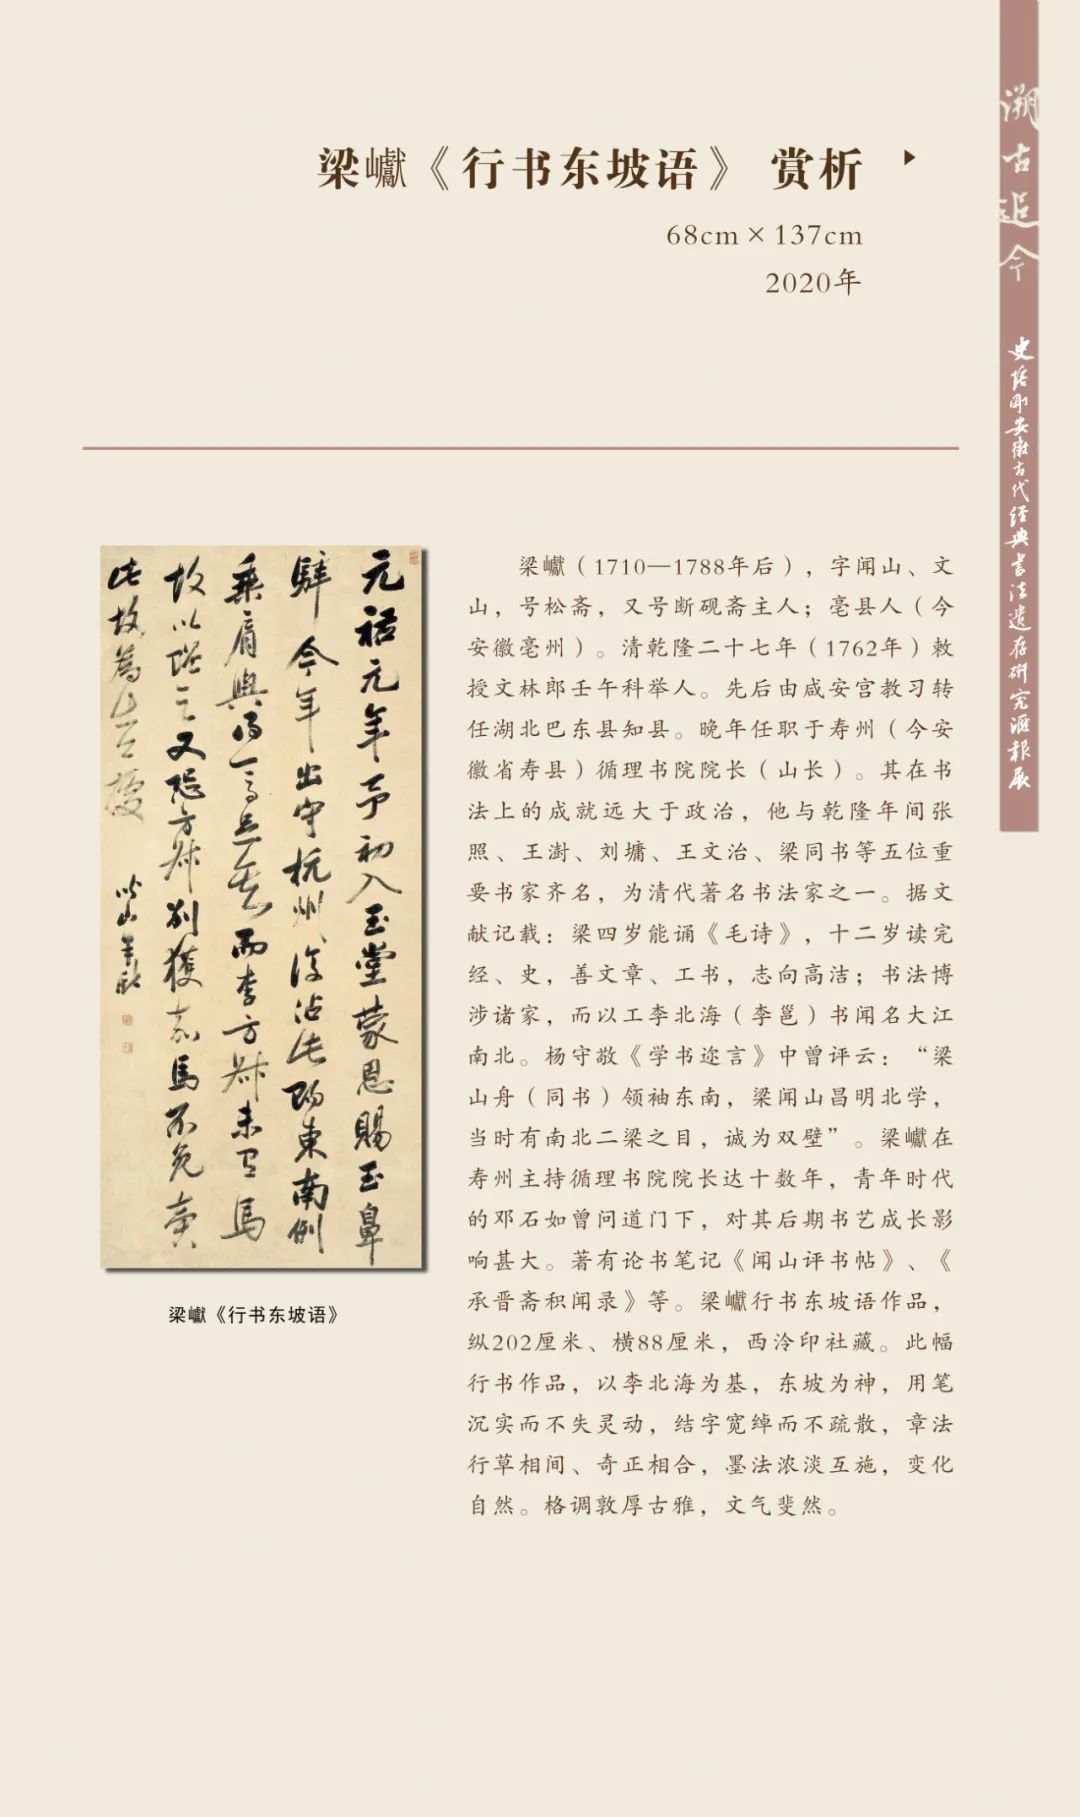 梁巘《行书东坡语》 赏析
68cm×137cm
2020年
溯古追今
史培刚安徽古代经典书法遗存研究汇报展
元祐元年予初入玉堂蒙恩賜玉鼻
騂今年出守杭州復沾此賜東南例
乘肩輿得一馬足矣而李方叔未有馬
故以贈之又恐方叔別獲嘉馬不免賣
此故為出公據
巘山梁巘
梁巘《行书东坡语》
梁巘（1710—1788年后），字闻山、文
山，号松斋，又号断砚斋主人；亳县人（今
安徽亳州）。清乾隆二十七年（1762年）敕
授文林郎壬午科举人。先后由咸安宫教习转
任湖北巴东县知县。晚年任职于寿州（今安
徽省寿县）循理书院院长（山长）。其在书
法上的成就远大于政治，他与乾隆年间张
照、王澍、刘墉、王文治、梁同书等五位重
要书家齐名，为清代著名书法家之一。据文
献记载：梁四岁能诵《毛诗》，十二岁读完
经、史，善文章、工书，志向高洁；书法博
涉诸家，而以工李北海（李邕）书闻名大江
南北。杨守敬《学书迩言》中曾评云：“梁
山舟（同书）领袖东南，梁闻山昌明北学，
当时有南北二梁之目，诚为双壁”。梁巘在
寿州主持循理书院院长达十数年，青年时代
的邓石如曾问道门下，对其后期书艺成长影
响甚大。著有论书笔记《闻山评书帖》、《
承晋斋积闻录》等。梁巘行书东坡语作品，
纵202厘米、横88厘米，西泠印社藏。此幅
行书作品，以李北海为基，东坡为神，用笔
沉实而不失灵动，结字宽绰而不疏散，章法
行草相间、奇正相合，墨法浓淡互施，变化
自然。格调敦厚古雅，文气斐然。